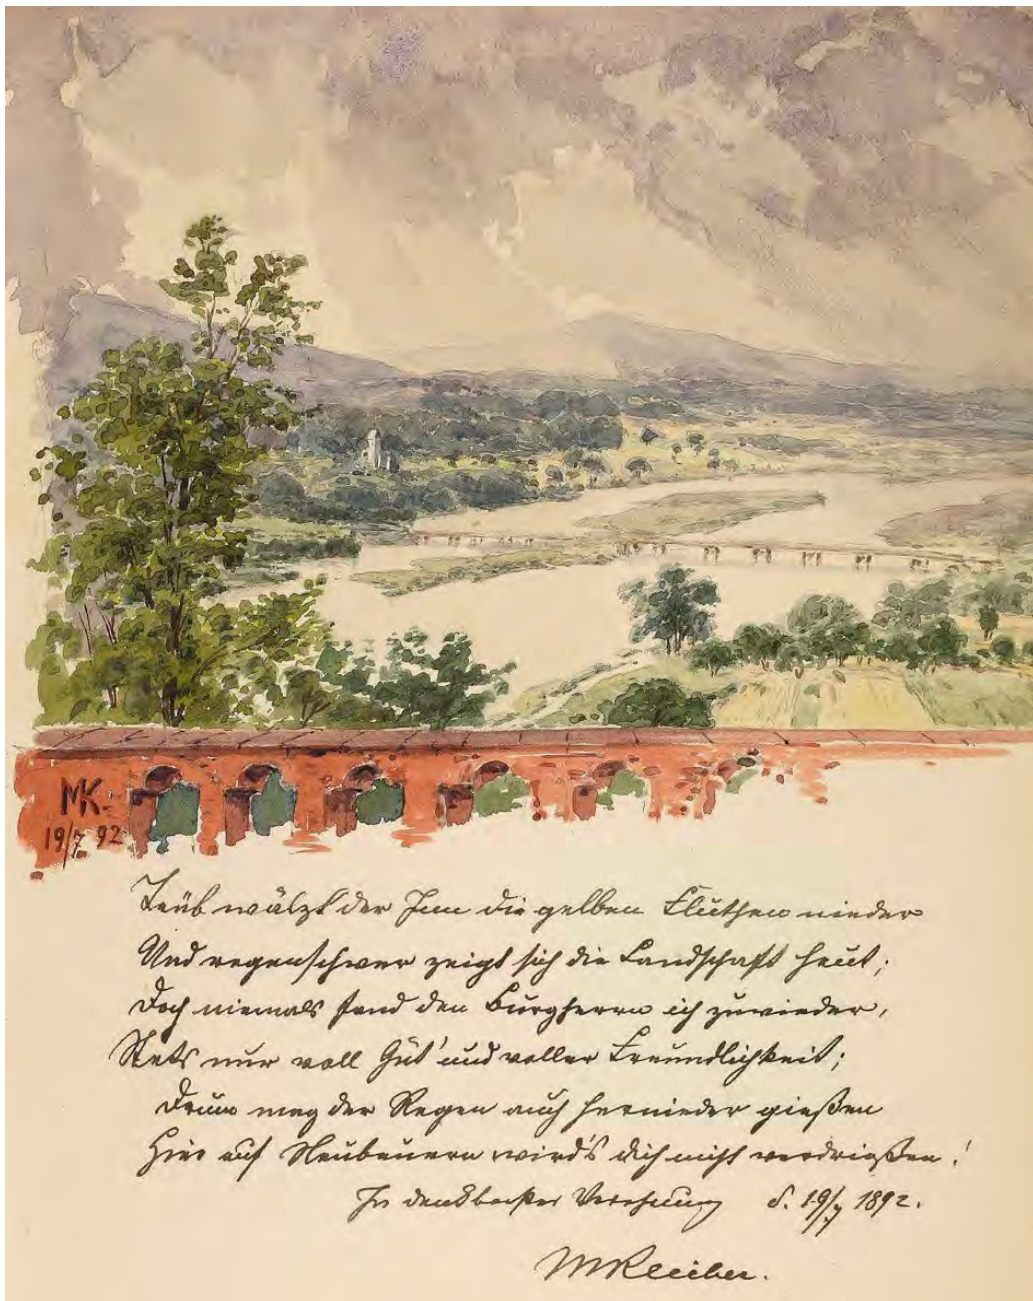 MK
19/7 92
Trüb wälzt der Inn die gelben Fluthen nieder
Und regenschwer zeigt sich die Landschaft heut;
Doch niemals fand den Burgherrn ich zuwieder,
Stets nur voll Güt' und voller Freundlichkeit;
Drum mag der Regen auch hernieder gießen
Hier auf Neubeuern wird's dich nicht verdrießen!
In dankbarster Verehrung d. 19/7 1892.
MKleiber.